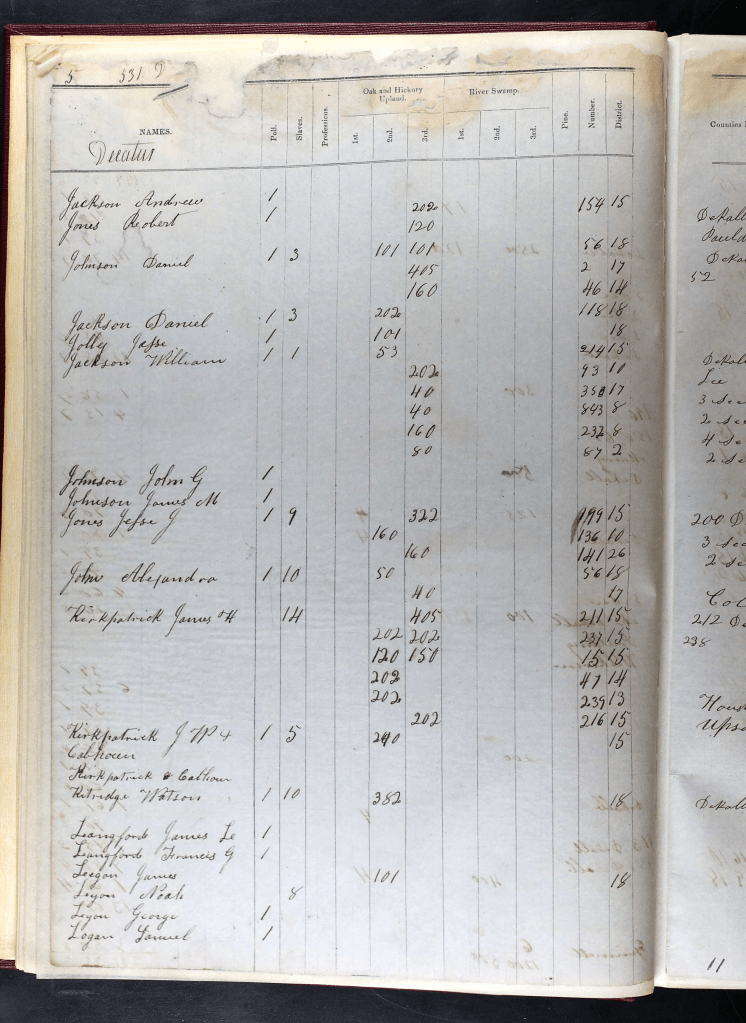 5 331
NAMES. Poll. Slaves. Professions. Oak and Hickory Upland. 1st. 2nd. 3rd. River Swamp. 1st. 2nd. 3rd. Pine. Number. District.
Counties
Decatur
Jackson Andrew 1 202 154 15
Jones Robert 1 120
Johnson Daniel 1 3 101 101 56 18
405 2 17
160 46 14
Jackson Daniel 1 3 202 118 18
Jolly Jesse 1 101 18
Jackson William 1 1 53 214 15
202 93 10
40 350 17
40 843 8
160 232 8
80 87 2
Johnson John G 1
Johnson James M 1
Jones Jesse J 1 9 322 199 15
160 136 10
160 141 26
John Alexandra 1 10 50 56 18
40 17
Kirkpatrick James H 14 405 211 15
202 202 237 15
120 150 15 15
202 47 14
202 239 13
202 216 15
Kirkpatrick J W & 1 5 240 15
Calhoun
Kirkpatrick & Calhoun
Kitridge Watson 1 10 382 18
Langford James Le 1
Langford Francis G 1
James 101 18
Lyon Noah 8
Lyon George 1
Logan Samuel 1
52
Lee
200
212
238
11